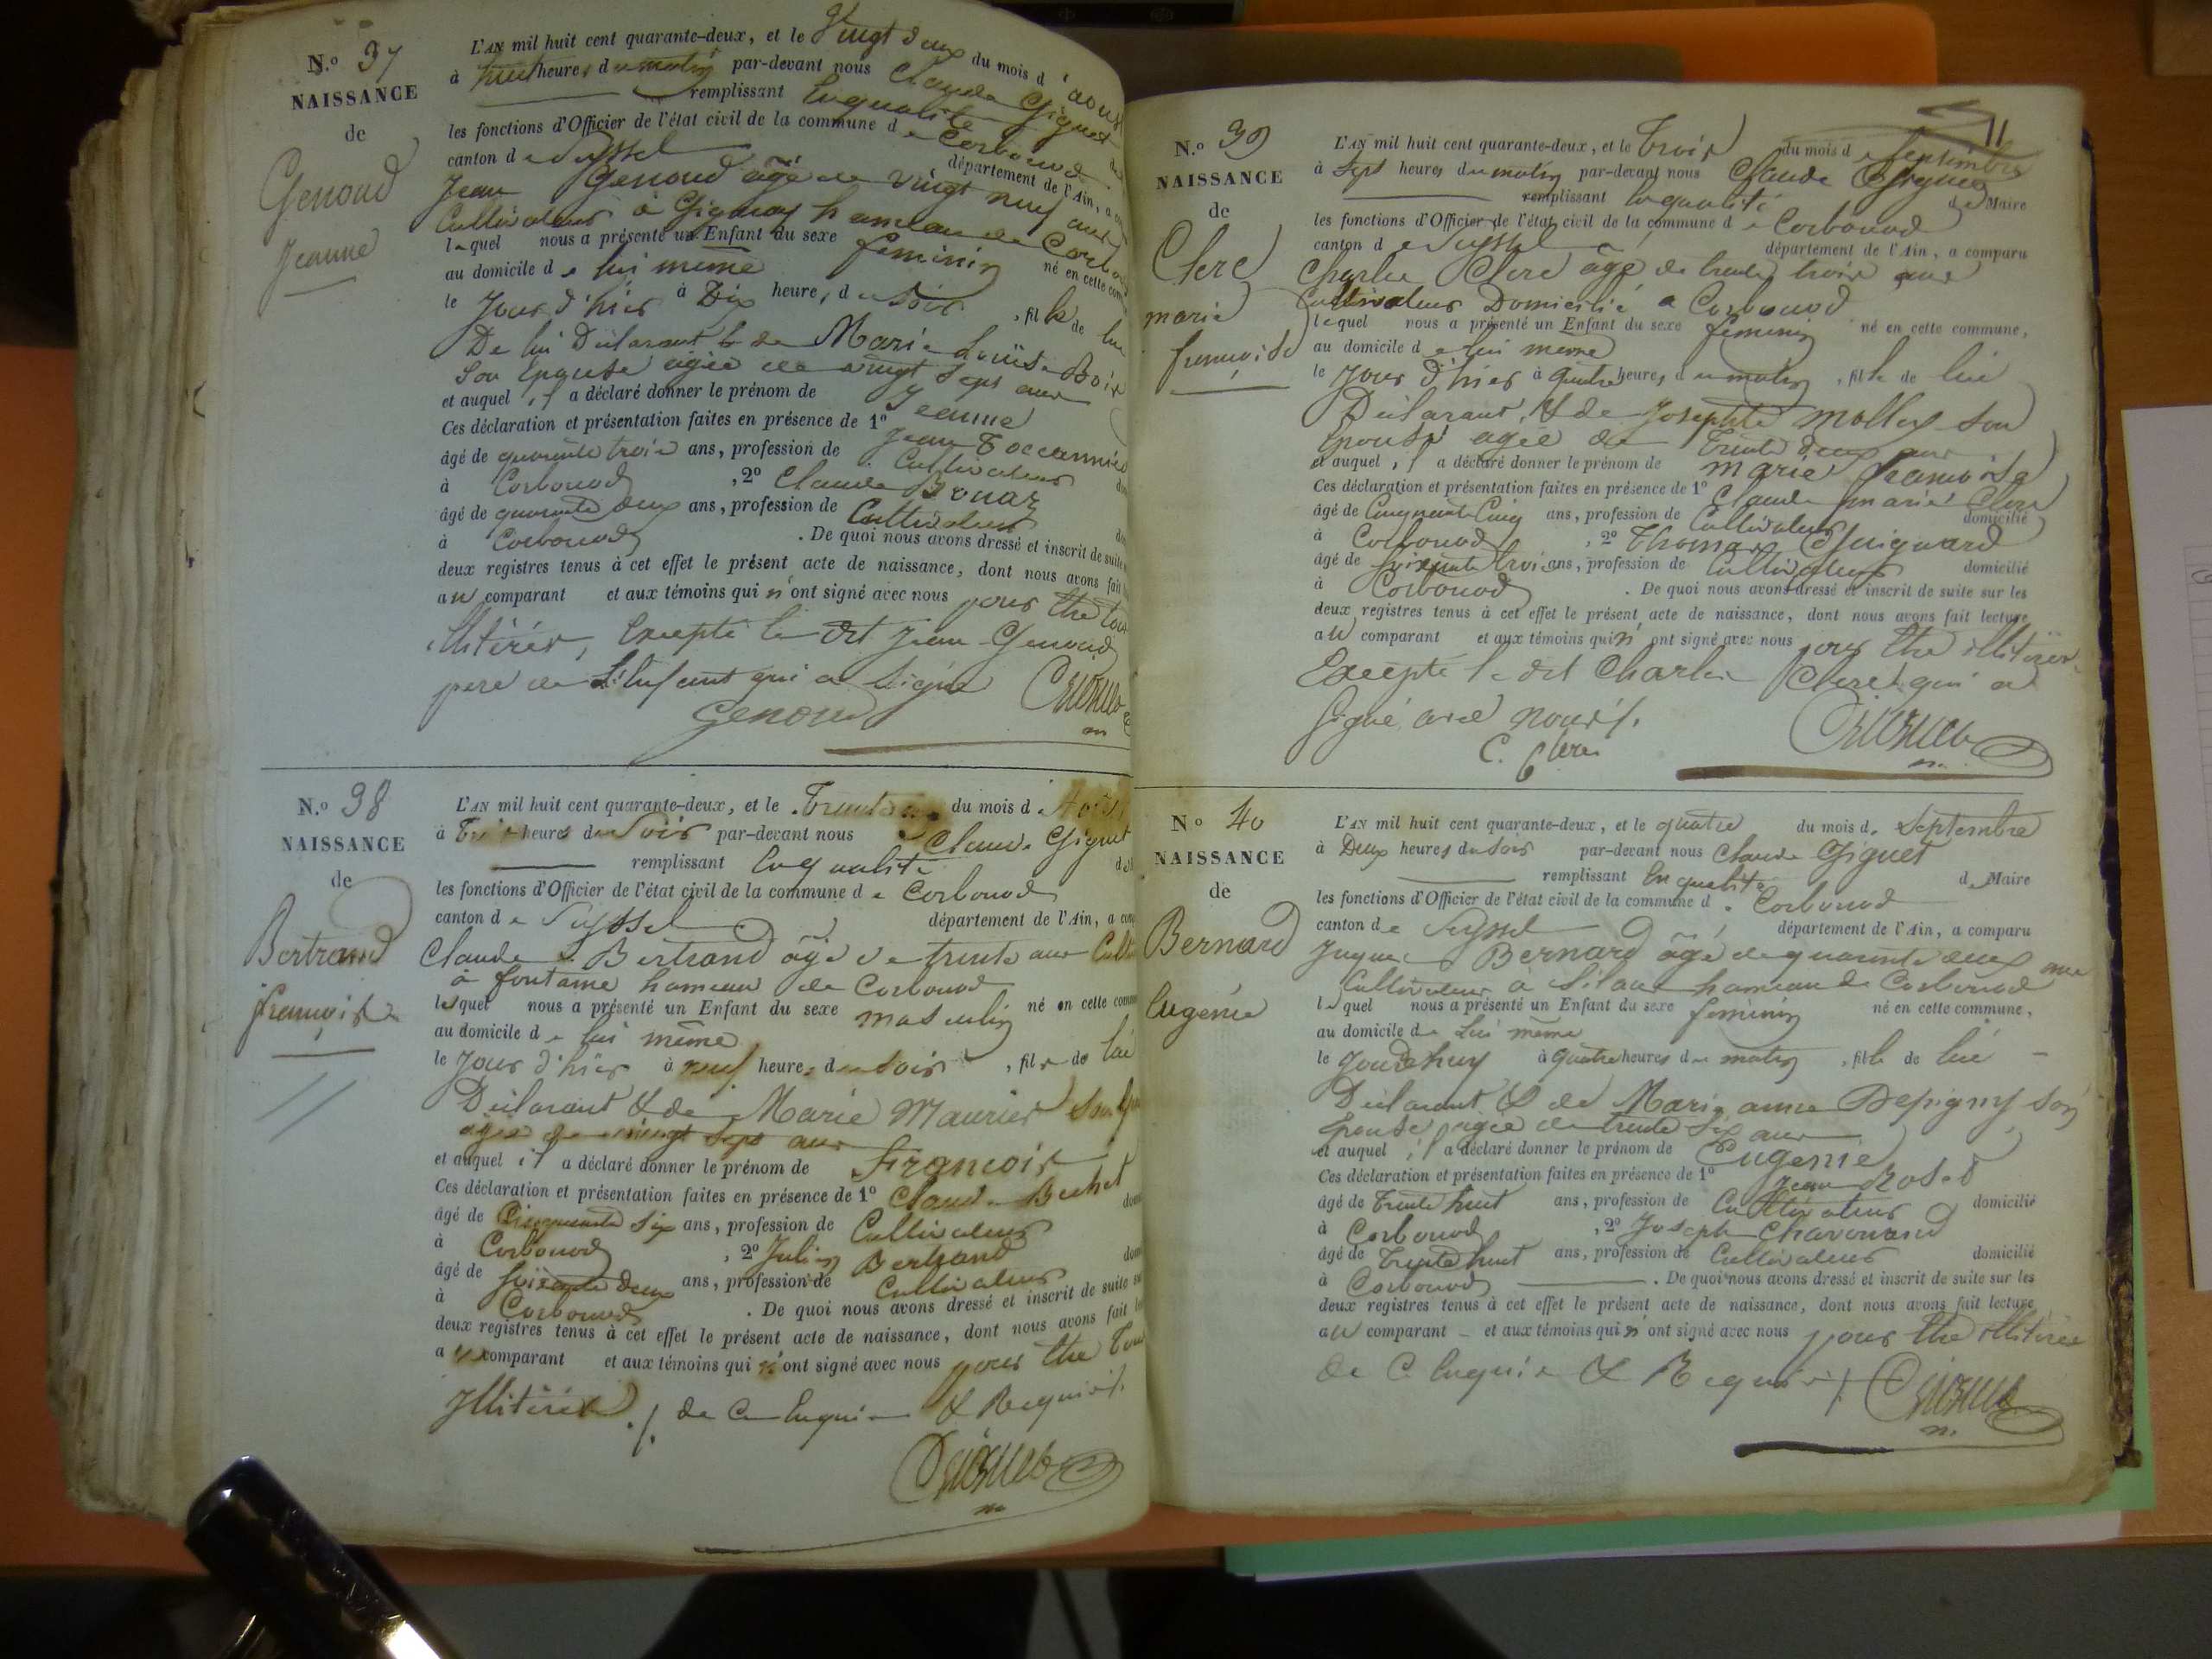 N.º 37
NAISSANCE
de
Genoud
Jeanne
L'AN mil huit cent quarante-deux, et le Vingt deux du mois d'aout
à huit heures du matin par-devant nous Claude Giguet
remplissant en qualité
les fonctions d'Officier de l'état civil de la commune de Corbonod
canton de Seyssel département de l'Ain, a
Jean Genoud âgé de vingt neuf ans
Cultivateur à Gignay hameau de Corbonod
lequel nous a présenté un Enfant du sexe féminin né en cette
au domicile de lui même
le Jour d'hier à Dix heures du Soir, fille de lui
De lui Déclarant & de Marie Louise
Son épouse agée de vingt Sept ans
et auquel il a déclaré donner le prénom de Jeanne
Ces déclaration et présentation faites en présence de 1º Jean
âgé de quarante trois ans, profession de Cultivateur
à Corbonod, 2º Claude Bonaz
âgé de quarante deux ans, profession de Cultivateur
à Corbonod. De quoi nous avons dressé et inscrit de suite
deux registres tenus à cet effet le présent acte de naissance, dont nous avons fait
au comparant et aux témoins qui n'ont signé avec nous pour être tous
illitérés, Excepté le dit Jean Genoud
père de L'Enfant qui a signé
Genoud
N.º 38
NAISSANCE
de
Bertrand
françois
L'AN mil huit cent quarante-deux, et le Trente du mois d'Août
à Trois heures du Soir par-devant nous Claude Giguet
remplissant en qualité
les fonctions d'Officier de l'état civil de la commune de Corbonod
canton de Seyssel département de l'Ain, a
Claude Bertrand âgé de trente ans
à fontaine hameau de Corbonod
lequel nous a présenté un Enfant du sexe masculin né en cette
au domicile de lui même
le Jour d'hier à neuf heures du Soir, fils de lui
Déclarant & de Marie Maurier Son
agée de vingt sept ans
et auquel il a déclaré donner le prénom de François
Ces déclaration et présentation faites en présence de 1º Claude Bechet
âgé de Cinquante Six ans, profession de Cultivateur
à Corbonod, 2º Julien Bertrand
âgé de Soixante deux ans, profession de Cultivateur
à Corbonod. De quoi nous avons dressé et inscrit de suite
deux registres tenus à cet effet le présent acte de naissance, dont nous avons fait
au comparant et aux témoins qui n'ont signé avec nous pour être Tous
Illitérés ./. de Ce Enquis & Requis
11
N.º 39
NAISSANCE
de
Clerc
marie
françoise
L'AN mil huit cent quarante-deux, et le Trois du mois de Septembre
à Sept heures du matin par-devant nous Claude Giguet
remplissant en qualité de Maire
les fonctions d'Officier de l'état civil de la commune de Corbonod
canton de Seyssel département de l'Ain, a comparu
Charles Clerc âgé de trente trois ans
Cultivateur Domicilié à Corbonod
lequel nous a présenté un Enfant du sexe féminin né en cette commune,
au domicile de lui même
le Jour d'hier à quatre heures du matin, fille de lui
Déclarant & de Josephte Mollex son
Epouse agée de Trente deux ans
et auquel il a déclaré donner le prénom de Marie françoise
Ces déclaration et présentation faites en présence de 1º Claude marie Clerc
âgé de Cinquante Cinq ans, profession de Cultivateur domicilié
à Corbonod, 2º Thomas Guignard
âgé de Soixante trois ans, profession de Cultivateur domicilié
à Corbonod. De quoi nous avons dressé et inscrit de suite sur les
deux registres tenus à cet effet le présent acte de naissance, dont nous avons fait lecture
au comparant et aux témoins qui n'ont signé avec nous pour être illitérés
Excepté le dit Charles Clerc qui a
signé avec nous ./.
C. Clerc
Nº 40
NAISSANCE
de
Bernard
Eugenie
L'AN mil huit cent quarante-deux, et le quatre du mois de Septembre
à Deux heures du Soir par-devant nous Claude Giguet
remplissant en qualité de Maire
les fonctions d'Officier de l'état civil de la commune de Corbonod
canton de Seyssel département de l'Ain, a comparu
Bernard âgé de quarante deux ans
Cultivateur à Silan hameau de Corbonod
lequel nous a présenté un Enfant du sexe féminin né en cette commune,
au domicile de Lui même
le Jourdhuy à quatre heures du matin, fille de lui
Déclarant & de Marie anne Depigny son
Epouse agée de trente Six ans
et auquel il a déclaré donner le prénom de Eugenie
Ces déclaration et présentation faites en présence de 1º Jean Roset
âgé de trente huit ans, profession de Cultivateur domicilié
à Corbonod, 2º Joseph Chavouard
âgé de Trente huit ans, profession de Cultivateur domicilié
à Corbonod. De quoi nous avons dressé et inscrit de suite sur les
deux registres tenus à cet effet le présent acte de naissance, dont nous avons fait lecture
au comparant et aux témoins qui n'ont signé avec nous pour être illitérés
de Ce Enquis & Requis ./.